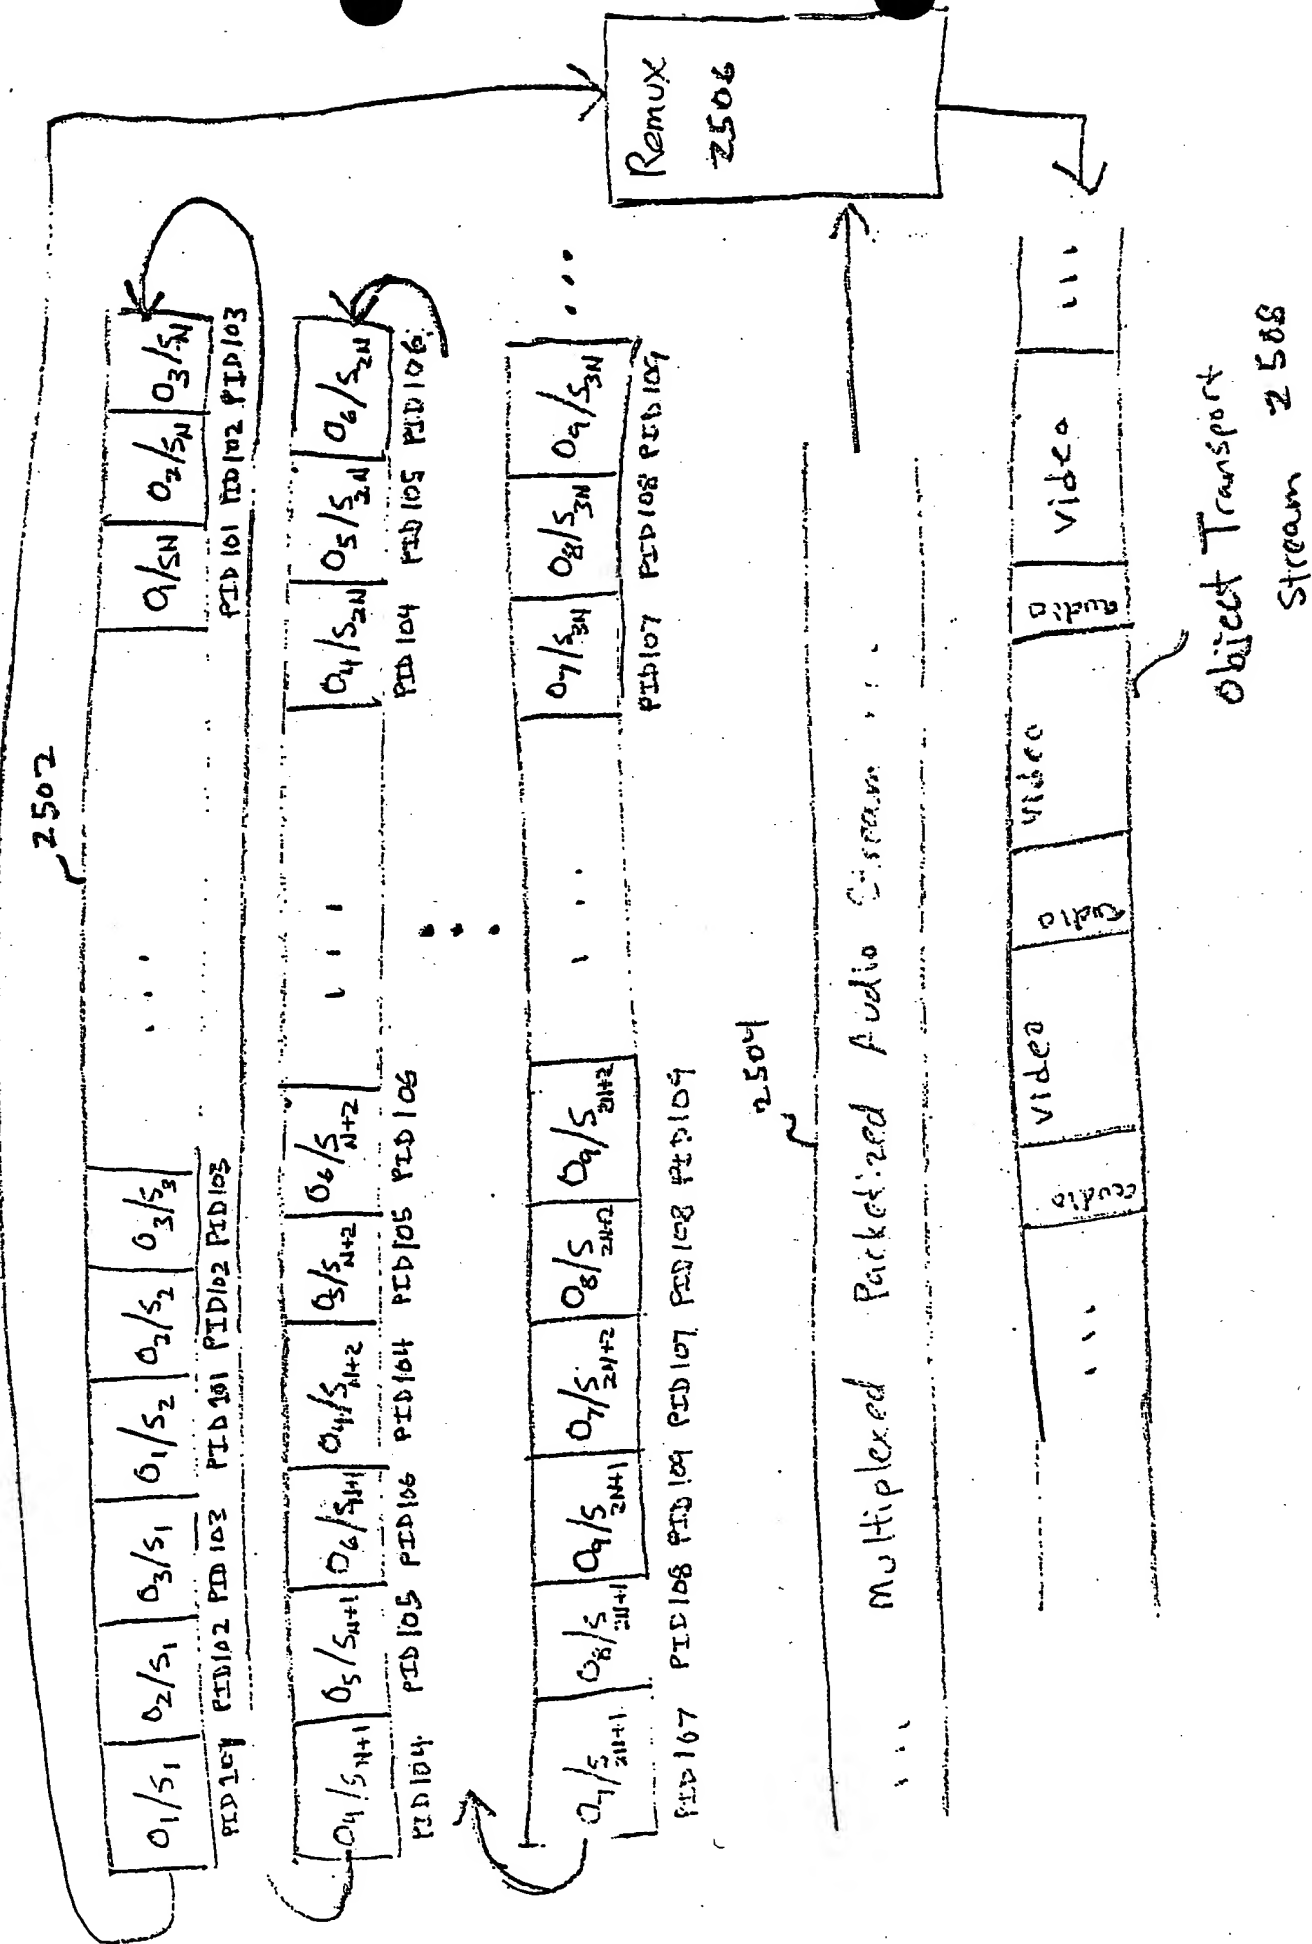 2502
O1/S1 O2/S1 O3/S1 O1/S2 O2/S2 O3/S3 ... O1/SN O2/SN O3/SN
PID101 PID102 PID103 PID101 PID102 PID103 PID101 PID102 PID103
O4/SN+1 O5/SN+1 O6/SN+1 O4/SN+2 O5/SN+2 O6/SN+2 ... O4/S2N O5/S2N O6/S2N
PID104 PID105 PID106 PID104 PID105 PID106 PID104 PID105 PID106
O7/S2N+1 O8/S2N+1 O9/S2N+1 O7/S2N+2 O8/S2N+2 O9/S2N+2 ... O7/S3N O8/S3N O9/S3N ...
PID107 PID108 PID109 PID107 PID108 PID109 PID107 PID108 PID109
2504
... Multiplexed Packetized Audio Stream ...
Remux
2506
... audio video audio video audio video ...
Object Transport
Stream 2508